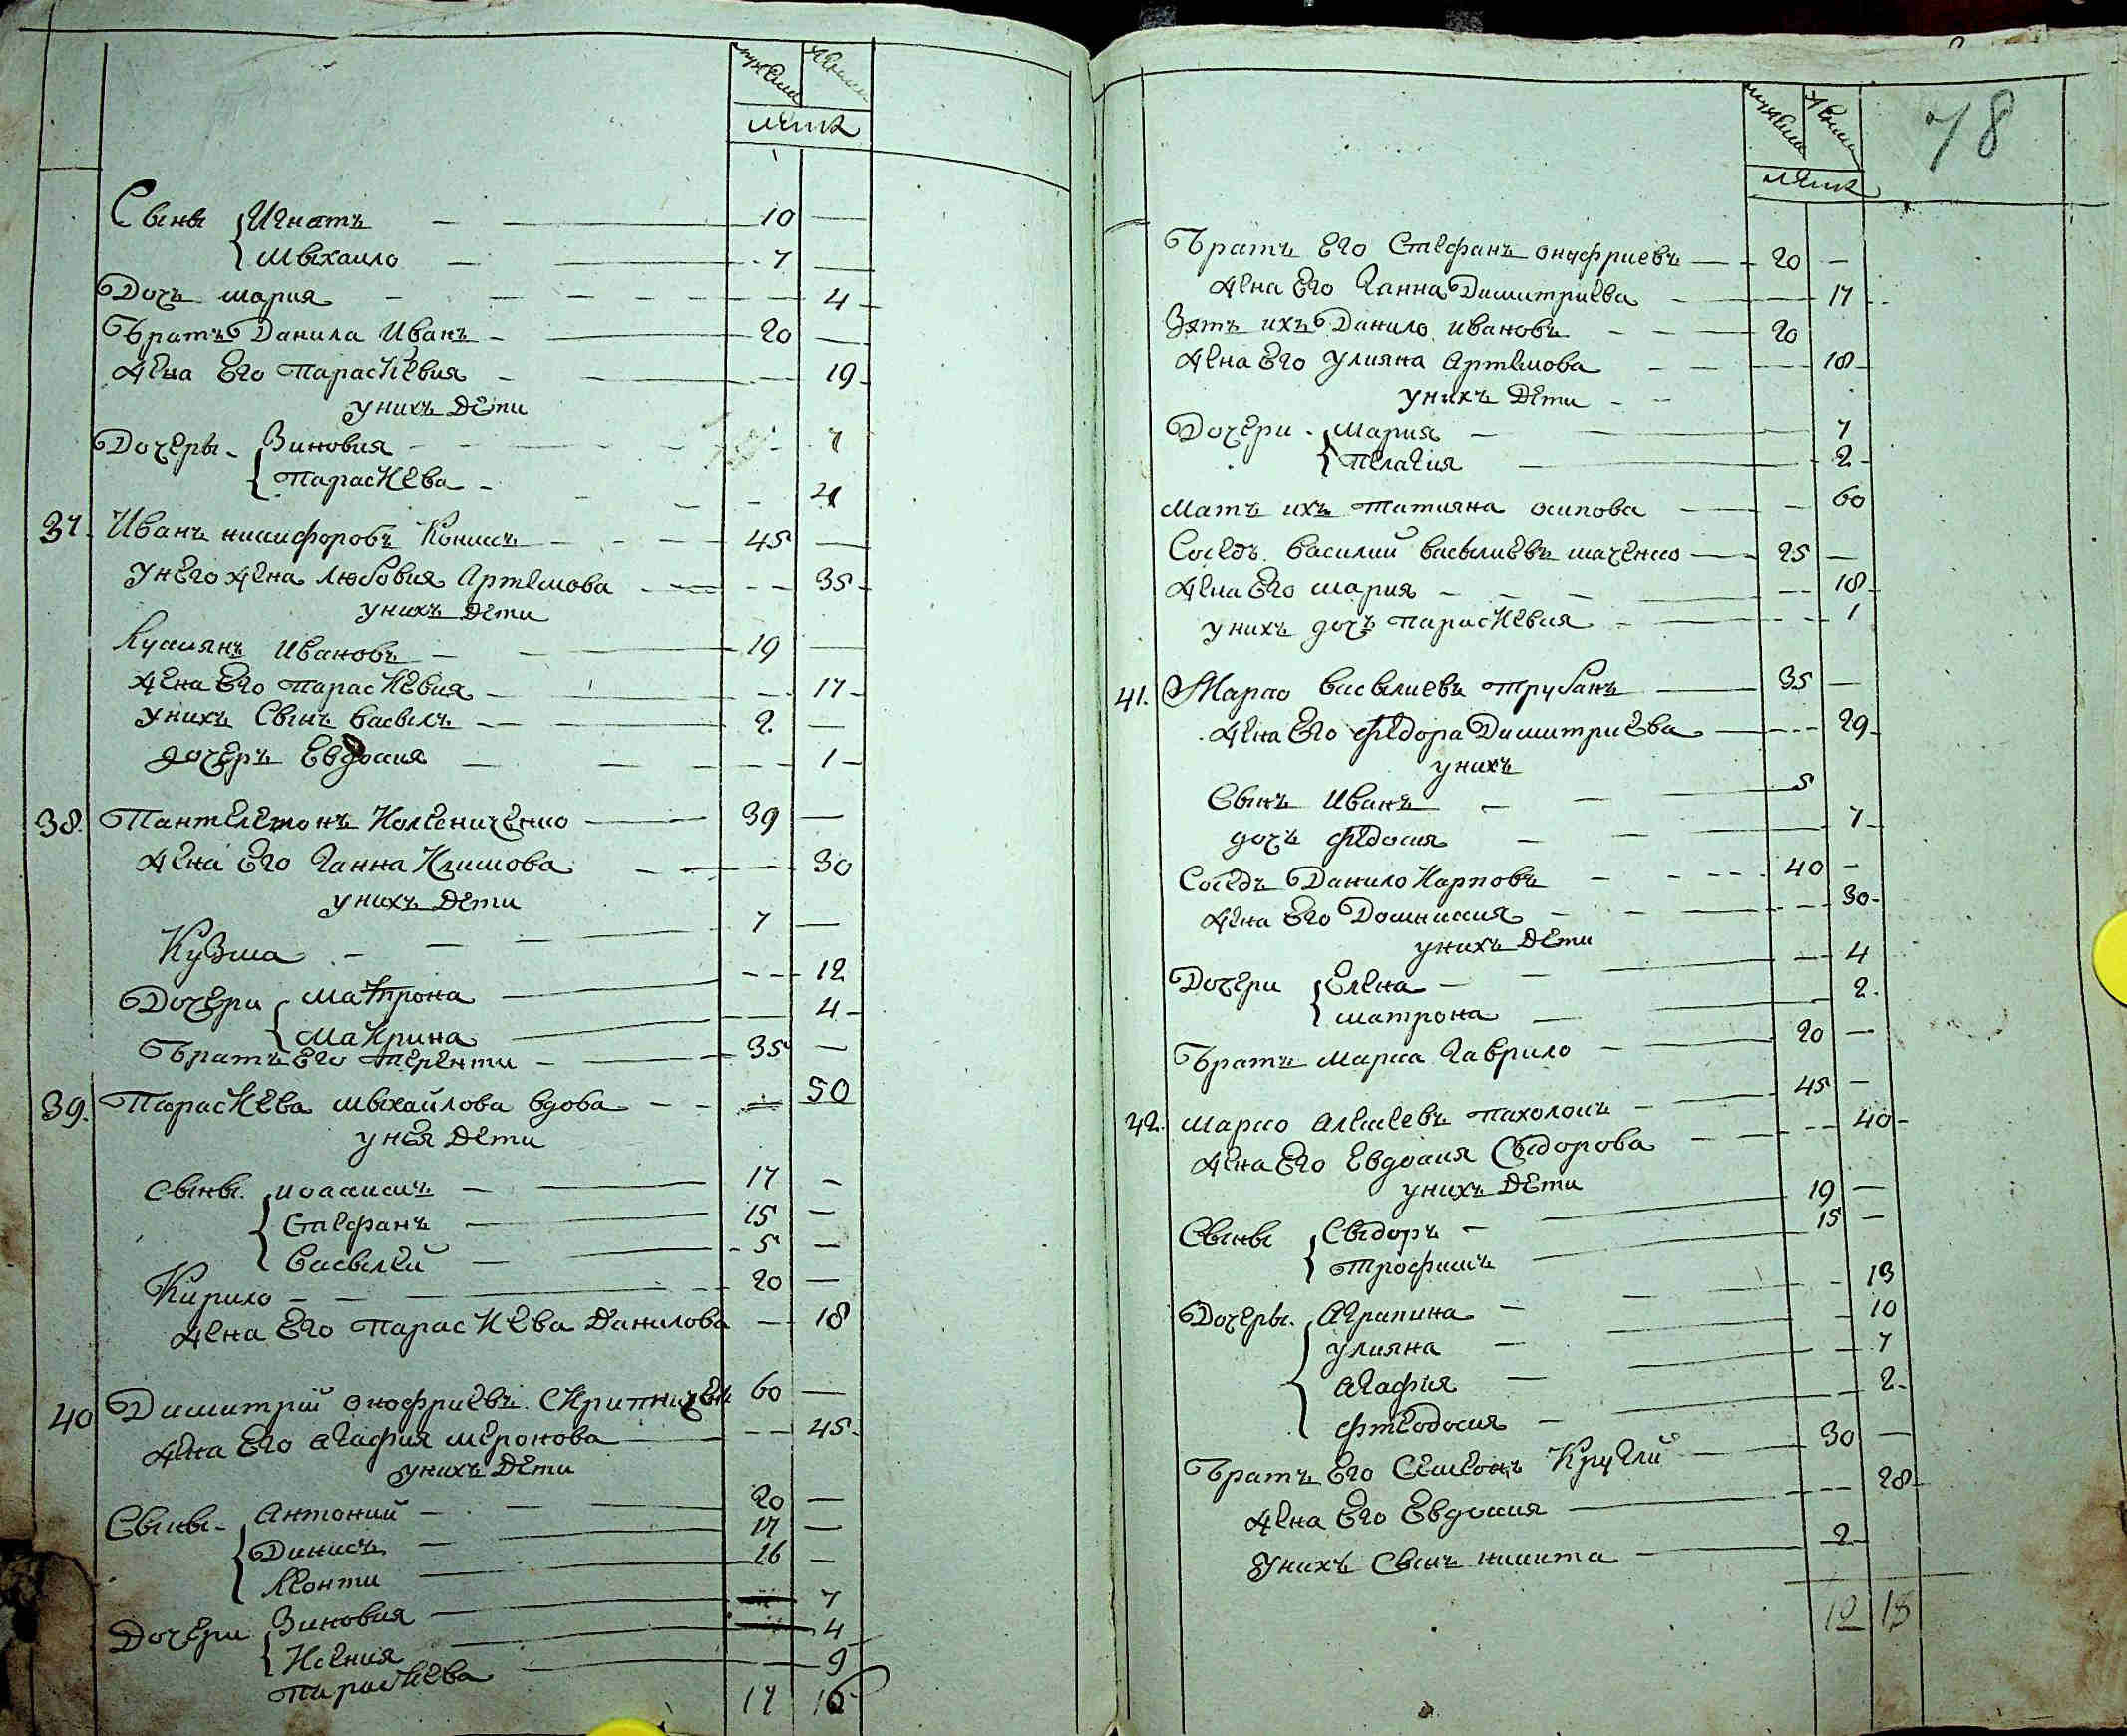 мужеска женска
лета
Сыны Игнатъ 10
Мыхаило 7
Дочъ мария 4
Братъ Данила Иванъ 20
жена Его параскевия 19
унихъ дети
Дочеры Зиновия 7
параскева
37. Иванъ никифоровъ 45
унего жена любовия Артемова 35
унихъ дети
Кузмянъ Ивановъ 19
жена Его параскевия 17
унихъ Сынъ васылъ 2
дочеръ Евдокия 1
38. Пантелемонъ Колесниченко 39
жена Его Ганна Климова 30
унихъ дети
Кузма 7
Дочери матрона 12
макрина 4
Братъ Его теренти 35
39. Параскева мыхайлова вдова 50
унея дети
Сыны иоакимъ 17
Стефанъ 15
Василей 5
Кирило 20
жена Его параскева данилова 18
40 Димитрий онофриевъ 60
жена Его агафия миронова 45
унихъ дети
Сыны Антоний 20
Динисъ 17
Леонти 16
Дочери Зиновия 7
Ксения 4
параскева 9
17 16
мужеска женска
лета
78
Братъ Его Стефанъ онуфриевъ 20
жена Его Ганна Димитриева 17
Зять ихъ Данило ивановъ 20
жена Его улияна Артемова 18
унихъ дети
Дочери мария 7
пелагия 2
мать ихъ татияна осипова 60
Соседъ василий васылиевъ 25
жена Его мария 18
унихъ дочъ параскевия 1
41. Марко васылиевъ трубанъ 35
жена Его федора Димитриева 29
унихъ
Сынъ Иванъ 5
дочъ федосия 7
Соседъ Данило Карповъ 40
жена Его Домникия 30
унихъ дети
Дочери Елена 4
матрона 2
Братъ марка Гаврило 20
42. марко алексеевъ 45
жена Его Евдокия Сыдорова 40
унихъ дети
Сыны Сыдоръ 19
трофимъ 15
Дочеры Аграпина 13
улияна 10
агафия 7
фтеодосия 2
Братъ Его Семенъ Круглий 30
жена Его Евдокия 28
унихъ Сынъ никита 2
12 15